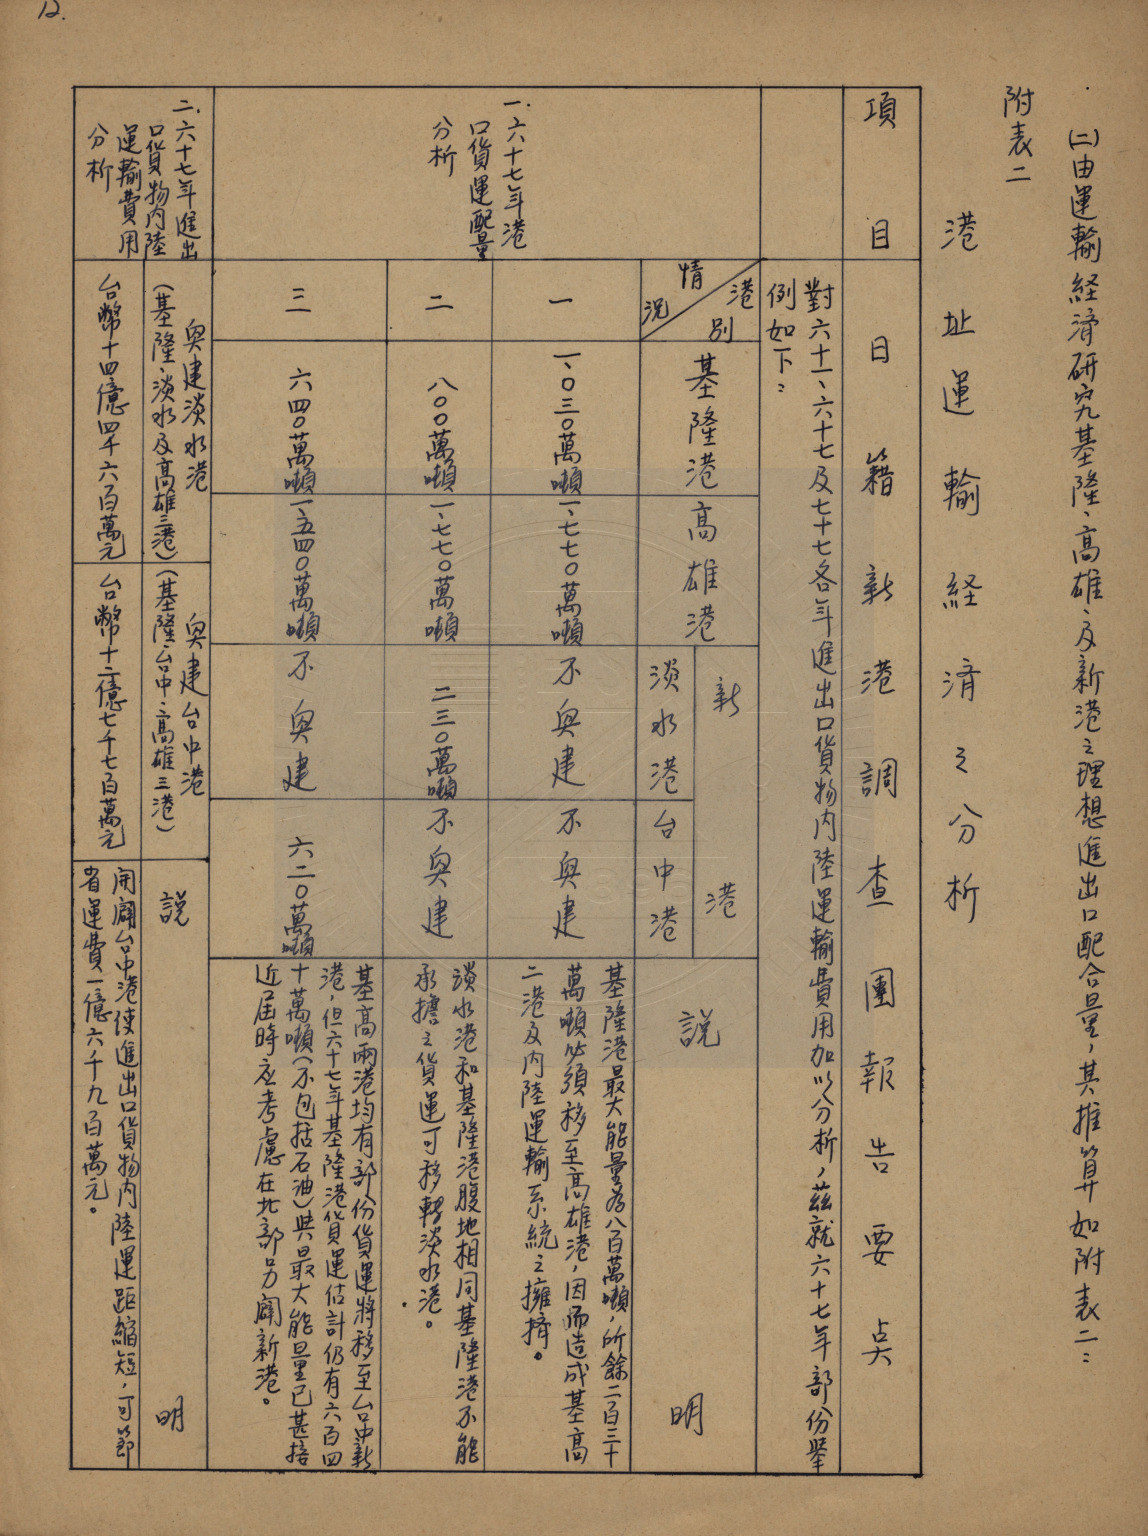 12.
㈡由運輸経済研究基隆、高雄、及新港之理想進出口配合量，其推算如附表二：
附表二
港址運輸経済之分析
項目
日籍新港調查團報告要点
對六十一、六十七及七十七各年進出口貨物內陸運輸費用加以分析，茲就六十七年部份舉
例如下：
一、六十七年港
口貨運配量
分析
港別
情況
基隆港
高雄港
新港
淡水港
台中港
説明
一
一、〇三〇萬噸
一、七七〇萬噸
不興建
不興建
基隆港最大能量為八百萬噸，所餘二百三十
萬噸必須移至高雄港，因而造成基高
二港及內陸運輸系統之擁擠。
二
八〇〇萬噸
一、七七〇萬噸
二三〇萬噸
不興建
淡水港和基隆港腹地相同基隆港不能
承擔之貨運可移轉淡水港。
三
六四〇萬噸
一、五四〇萬噸
不興建
六二〇萬噸
基高兩港均有部份貨運將移至台中新
港，但六十七年基隆港貨運估計仍有六百四
十萬噸（不包括石油）與最大能量已甚接
近屆時應考慮在北部另闢新港。
二、六十七年進出
口貨物內陸
運輸費用
分析
興建淡水港
（基隆、淡水及高雄三港）
興建台中港
（基隆、台中、高雄三港）
説明
台幣十四億四千六百萬元
台幣十二億七千七百萬元
開闢台中港使進出口貨物內陸運距縮短，可節
省運費一億六千九百萬元。